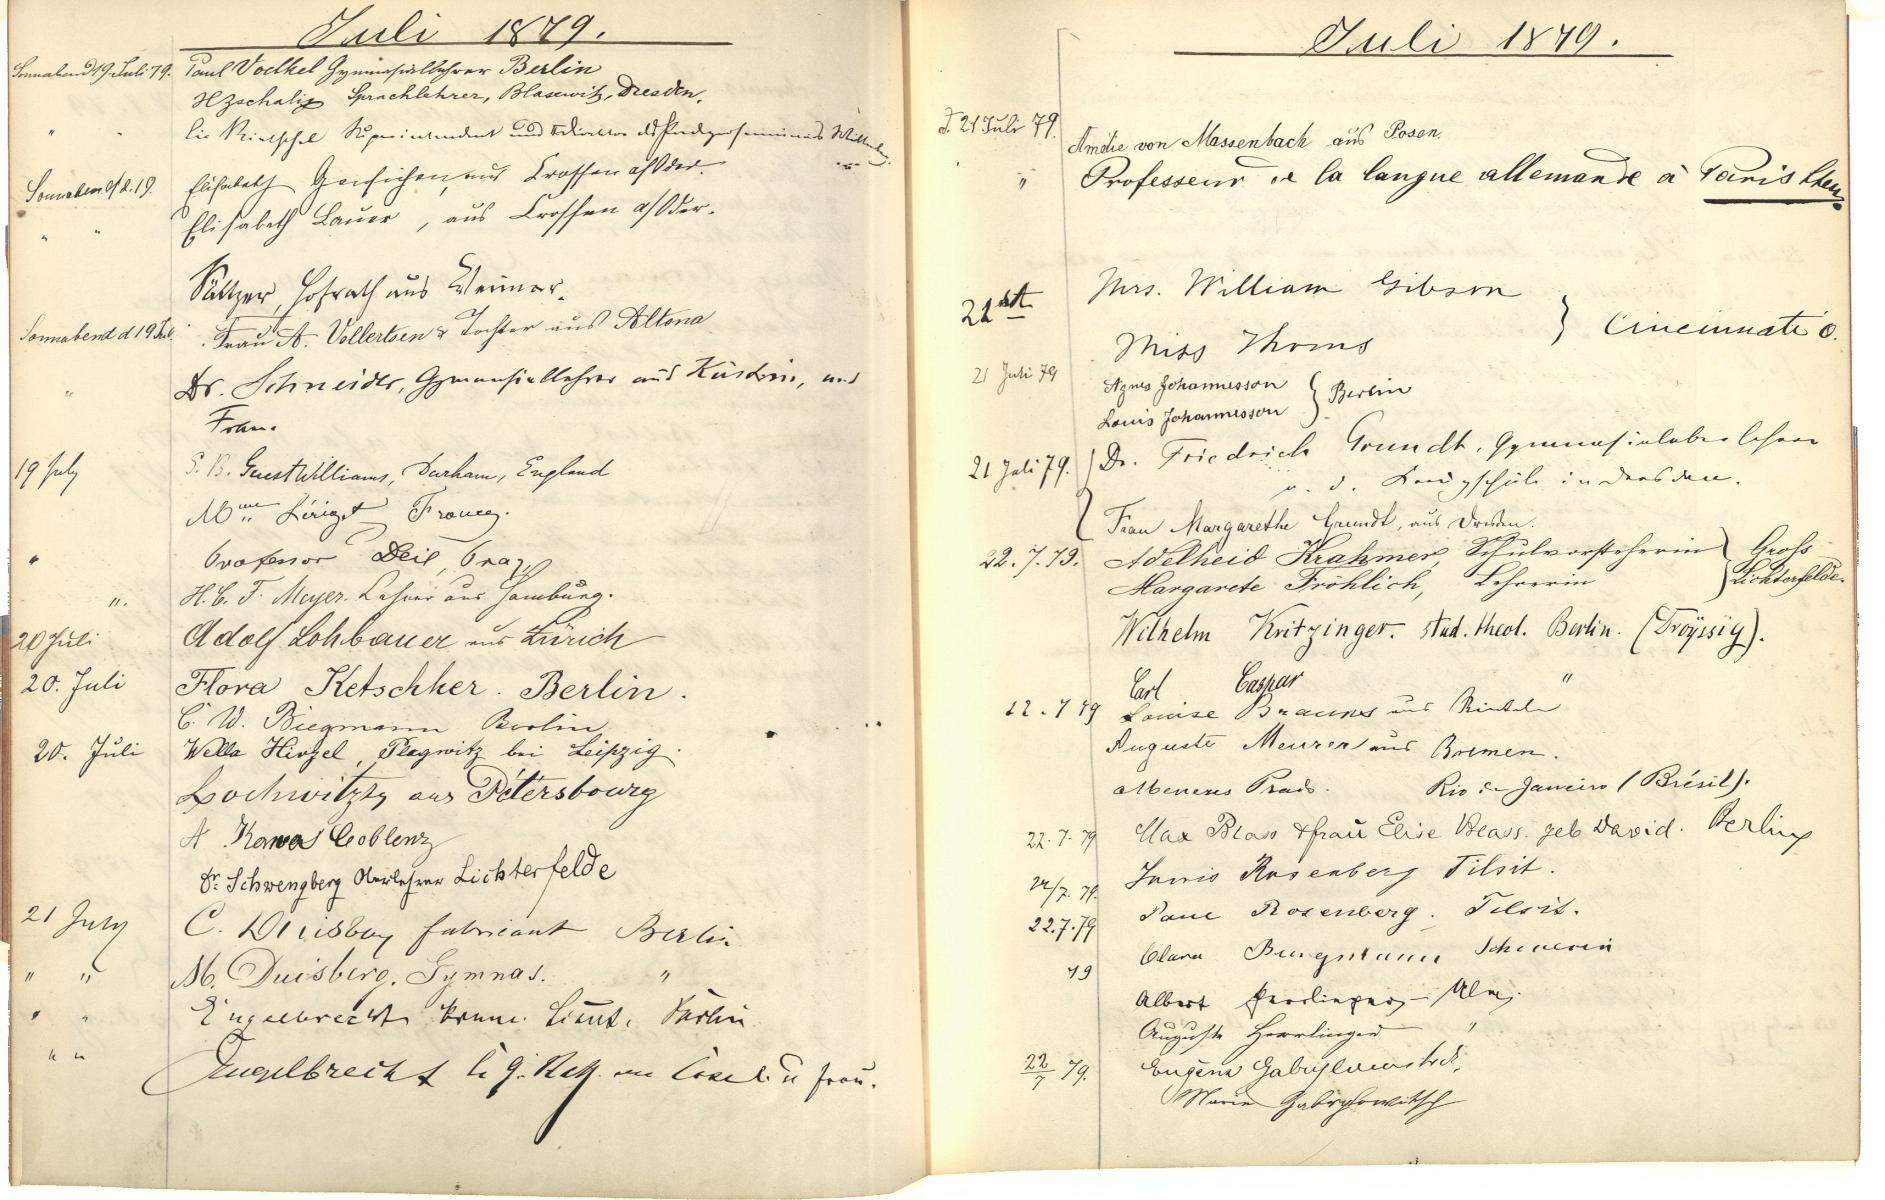 Juli 1879.
Sonnabend 19. Juli 79. Paul Voelkel Gymnasiallehrer Berlin
HZschalig Sprachlehrer, Blasewitz, Dresden.
" " lic Rietschel Superintendent und Director des Predigerseminars Wittenberg.
Sonnabend d. 19. Elisabeth aus Crossen a/Oder.
" " Elisabeth Lauer, aus Crossen a/Oder.
Hofrath aus Weimar.
Sonnabend d 19 Juli. Frau A. Vollertsen & Tochter aus Altona
" Dr. Schneider, Gymnasiallehrer aus Küstrin, und
Frau.
19 July Guest Williams, Durham, England
Mme France.
" Professor Deil, Graz,
" H. C. F. Meyer. Lehrer aus Hamburg.
20 Juli Adolf Lohbauer aus Zürich
20. Juli Flora Ketschker. Berlin.
C. W. Biegmann Berlin
20. Juli Wella Hirzel, Plagwitz bei Leipzig.
Lochwitzky aus Pétersbourg
A Coblenz
Dr. Schwengberg Oberlehrer Lichterfelde
21 July C. Duisberg fabricant Berlin
" " M. Duisberg. Gymnas. "
" " Engelbrecht Prem. Lieut. Berlin
" " Engelbrecht u frau.
Juli 1879.
d. 21 Juli 79. Amélie von Massenbach aus Posen.
" Professeur de la langue allemande à Paris
21st Mrs. William Gibson
Miss Thoms } Cincinnati O.
21 Juli 79 Agnes Johannesson
Louis Johannesson } Berlin
21 Juli 79. Dr. Friedrich Grundt, Gymnasialoberlehrer
a. d. Kreuzschule in Dresden.
Frau Margarethe Grundt, aus Dresden.
22. 7. 79. Adelheid Krahmer, Schulvorsteherin
Margarete Fröhlich, Lehrerin } Gross Lichterfelde.
Wilhelm Kritzinger. stud. theol. Berlin. (Droyssig).
Carl Caspar "
22. 7 79 Louise Braunes aus Rinteln
Auguste Meurer aus Bremen.
Menezes Prado. Rio de Janeiro (Brésil).
22. 7. 79 Max Blass & frau Elise Blass. geb David. Berlin
22/7. 79. Rosenberg Tilsit.
22. 7. 79 Rosenberg. Tilsit.
79 Clara Schwerin
Albert Herrlinger – Ulm.
Auguste Herrlinger "
22/7 79. Eugene
Marie Gabrylowitsch